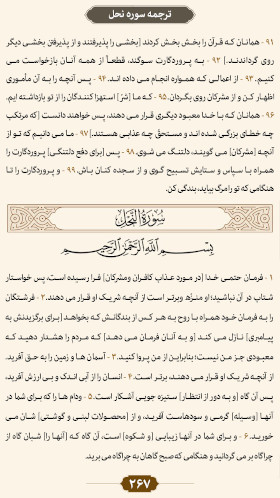 ترجمه سوره نحل
۹۱ - همانان که قرآن را بخش بخش کردند [بخشی را پذیرفتند و از پذیرفتن بخشی دیگر
روی گرداندند.] ۹۲ - به پروردگارت سوگند، قطعاً از همه آنان بازخواست می
کنیم. ۹۳ - از اعمالی که همواره انجام می داده اند. ۹۴ - پس آنچه را به آن مأموری
اظهار کن و از مشرکان روی بگردان. ۹۵ - که ما [شرّ] استهزا کنندگان را از تو بازداشته ایم.
۹۶ - همانان که با خدا معبود دیگری قرار می دهند، پس خواهند دانست [که مرتکب
چه خطای بزرگی شده اند و مستحق چه عذابی هستند.] ۹۷ - ما می دانیم که تو از
آنچه [مشرکان] می گویند، دلتنگ می شوی. ۹۸ - پس [برای دفع دلتنگی] پروردگارت را
همراه با سپاس و ستایش تسبیح گوی و از سجده کنان باش. ۹۹ - و پروردگارت را تا
هنگامی که تو را مرگ بیاید، بندگی کن.
سُورَةُ النَّحْل
بِسْمِ اللَّهِ الرَّحْمَٰنِ الرَّحِيمِ
۱ - فرمان حتمی خدا [در مورد عذاب کافران ومشرکان] فرا رسیده است، پس خواستار
شتاب در آن نباشید؛ او منزّه وبرتر است از آنچه شریک او قرار می دهند. ۲ - فرشتگان
را به فرمان خود همراه با روح به هر کس از بندگانش که بخواهد [برای برگزیدنش به
پیامبری] نازل می کند [و به آنان فرمان می دهد] که مردم را هشدار دهید که
معبودی جز من نیست؛ بنابراین از من پروا کنید. ۳ - آسمان ها و زمین را به حق آفرید.
از آنچه شریک او قرار می دهند، برتر است. ۴ - انسان را از آبی اندک و بی ارزش آفرید،
پس آن گاه [و به دور از انتظار] ستیزه جویی آشکار است. ۵ - ودام ها را که برای شما در
آنها [وسیله] گرمی و سودهاست آفرید، و از [محصولات لبنی و گوشتی] شان می
خورید. ۶ - و برای شما در آنها زیبایی [و شکوه] است، آن گاه که [آنها را] شبان گاه از
چراگاه بر می گردانید و هنگامی که صبح گاهان به چراگاه می برید.
۲۶۷